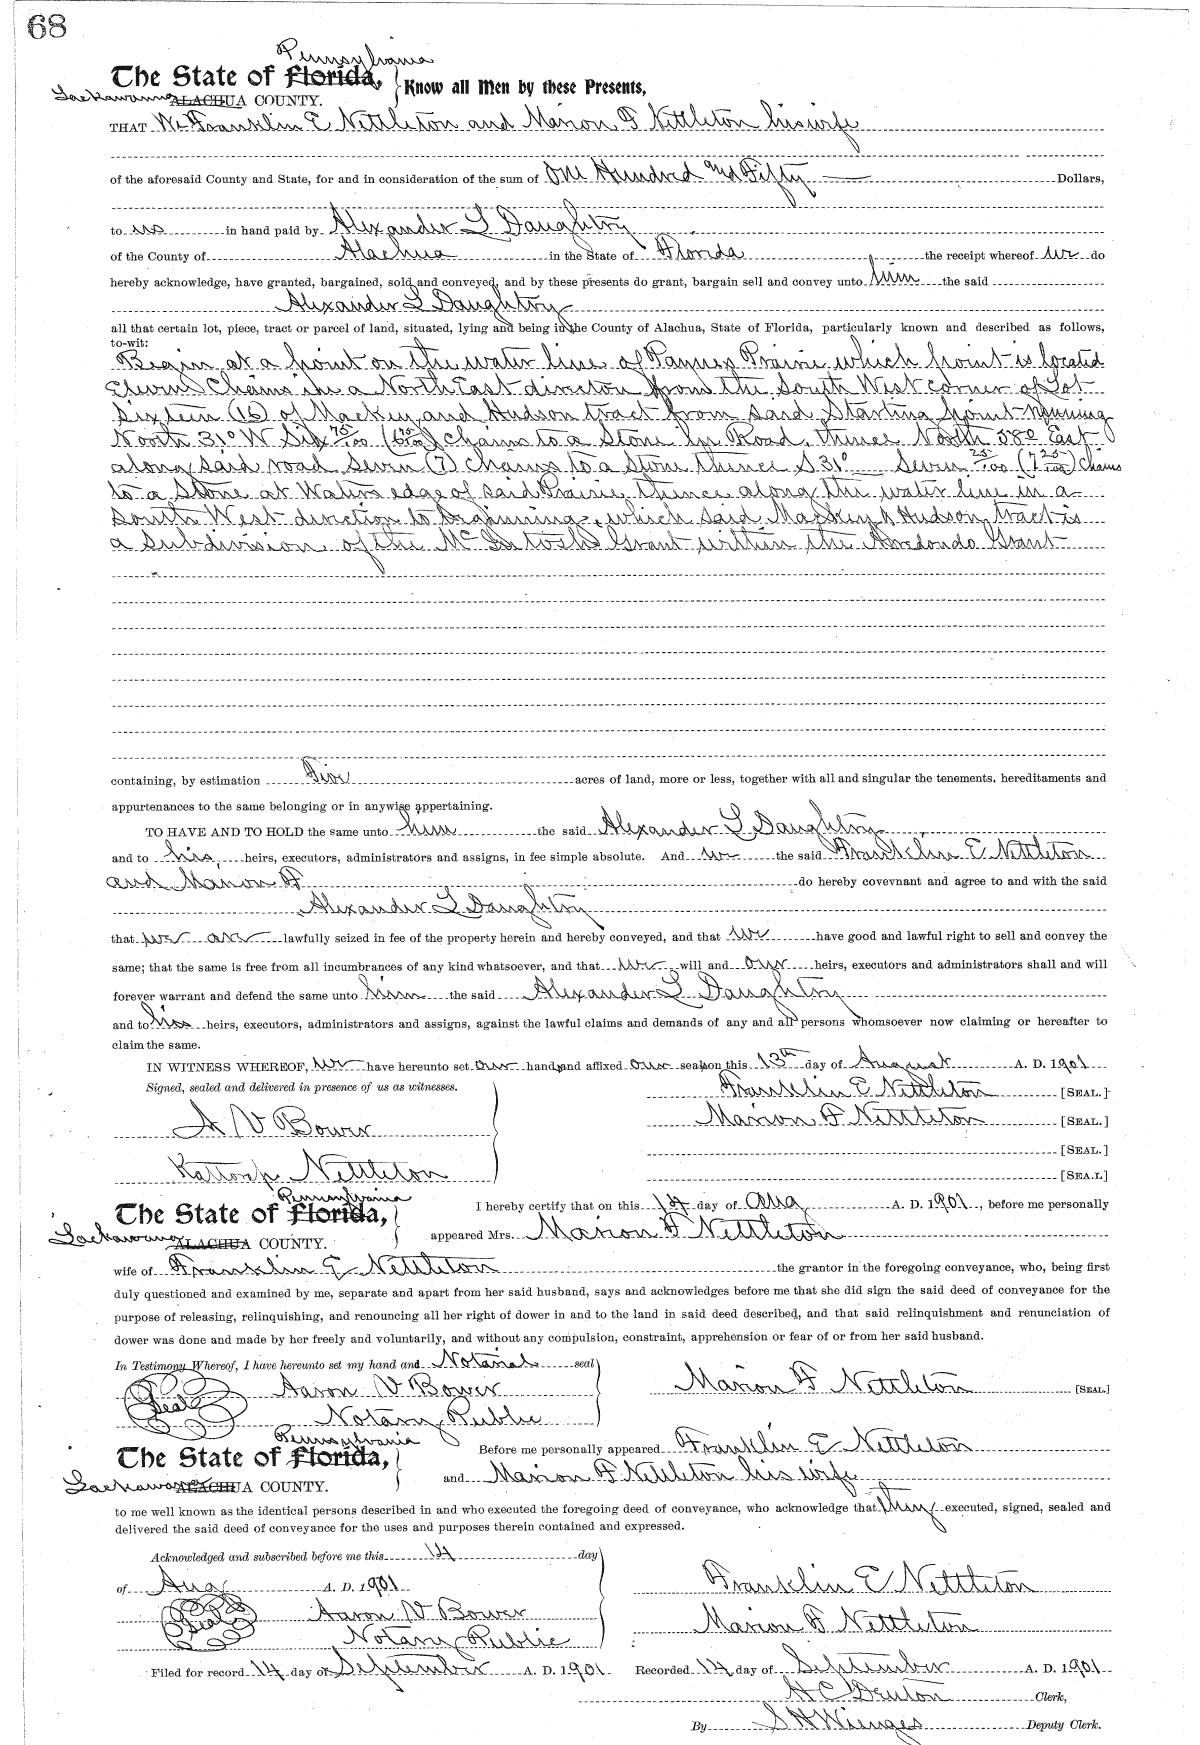 68
Pennsylvania
The State of Florida, Know all Men by these Presents,
Lackawanna ALACHUA COUNTY.
THAT We Franklin E Nettleton and Marion F Nettleton his wife
of the aforesaid County and State, for and in consideration of the sum of One Hundred and Fifty Dollars,
to us in hand paid by Alexander L Daughtry
of the County of Alachua in the State of Florida the receipt whereof we do
hereby acknowledge, have granted, bargained, sold and conveyed, and by these presents do grant, bargain sell and convey unto him the said
Alexander L Daughtry
all that certain lot, piece, tract or parcel of land, situated, lying and being in the County of Alachua, State of Florida, particularly known and described as follows,
to-wit:
Begin at a point on the water line of Paynes Prairie which point is located
Eleven Chains in a North East direction from the South West corner of Lot
Sixteen (16) of Mackey and Hudson tract from said Starting point running
North 31° W Six 75/100 (6 75/100) chains to a Stone by Road, thence North 58° East
along said road Seven (7) Chains to a Stone thence S 31° Seven 25/100 (7 25/100) Chains
to a Stone at Waters edge of said Prairie, thence along the water line in a
South West direction to beginning, which said Mackey & Hudson tract is
a Subdivision of the McIntosh Grant within the Arredondo Grant
containing, by estimation Five acres of land, more or less, together with all and singular the tenements, hereditaments and
appurtenances to the same belonging or in anywise appertaining.
TO HAVE AND TO HOLD the same unto him the said Alexander L Daughtry
and to his heirs, executors, administrators and assigns, in fee simple absolute. And we the said Franklin E Nettleton
and Marion F do hereby covevnant and agree to and with the said
Alexander L Daughtry
that we are lawfully seized in fee of the property herein and hereby conveyed, and that we have good and lawful right to sell and convey the
same; that the same is free from all incumbrances of any kind whatsoever, and that we will and our heirs, executors and administrators shall and will
forever warrant and defend the same unto him the said Alexander L Daughtry
and to his heirs, executors, administrators and assigns, against the lawful claims and demands of any and all persons whomsoever now claiming or hereafter to
claim the same.
IN WITNESS WHEREOF, we have hereunto set our hands and affixed our seals on this 13th day of August A. D. 1901
Signed, sealed and delivered in presence of us as witnesses. Franklin E Nettleton [SEAL.]
A V Bower Marion F Nettleton [SEAL.]
[SEAL.]
Nettleton [SEAL.]
Pennsylvania
The State of Florida, I hereby certify that on this 14 day of Aug A. D. 1901, before me personally
Lackawanna ALACHUA COUNTY. appeared Mrs. Marion F Nettleton
wife of Franklin E Nettleton the grantor in the foregoing conveyance, who, being first
duly questioned and examined by me, separate and apart from her said husband, says and acknowledges before me that she did sign the said deed of conveyance for the
purpose of releasing, relinquishing, and renouncing all her right of dower in and to the land in said deed described, and that said relinquishment and renunciation of
dower was done and made by her freely and voluntarily, and without any compulsion, constraint, apprehension or fear of or from her said husband.
In Testimony Whereof, I have hereunto set my hand and Notarial seal
Seal Aaron V Bower Marion F Nettleton [SEAL.]
Notary Public
Pennsylvania
The State of Florida, Before me personally appeared Franklin E Nettleton
Lackawanna ALACHUA COUNTY. and Marion F Nettleton his wife
to me well known as the identical persons described in and who executed the foregoing deed of conveyance, who acknowledge that they executed, signed, sealed and
delivered the said deed of conveyance for the uses and purposes therein contained and expressed.
Acknowledged and subscribed before me this 14 day
of Aug A. D. 1901 Franklin E Nettleton
Seal Aaron V Bower Marion F Nettleton
Notary Public
Filed for record 14 day of September A. D. 1901 Recorded 14 day of September A. D. 1901
H C Denton Clerk,
By S H Wienges Deputy Clerk.